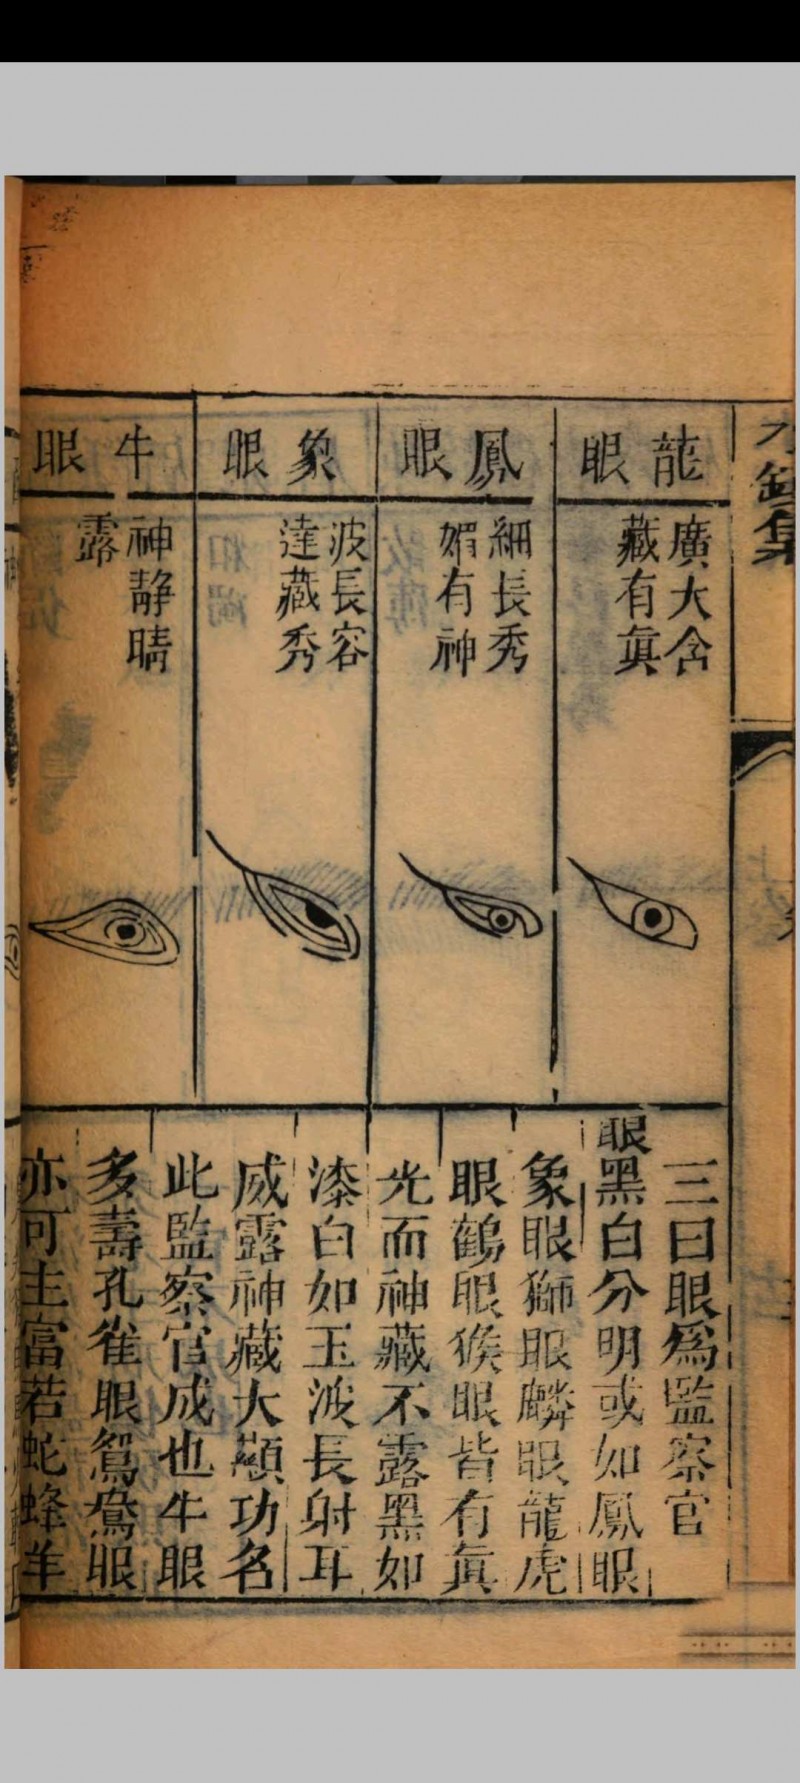 水鏡集
龍眼
廣大含
藏有眞
鳳眼
細長秀
媚有神
象眼
波長容
達藏秀
牛眼
神靜睛
露
三曰眼爲監察官
眼黑白分明或如鳳眼
象眼獅眼麟眼龍虎
眼鶴眼猴眼皆有眞
光而神藏不露黑如
漆白如玉波長射耳
威露神藏大顯功名
此監察官成也牛眼
多壽孔雀眼鴛鴦眼
亦可主富若蛇蜂羊